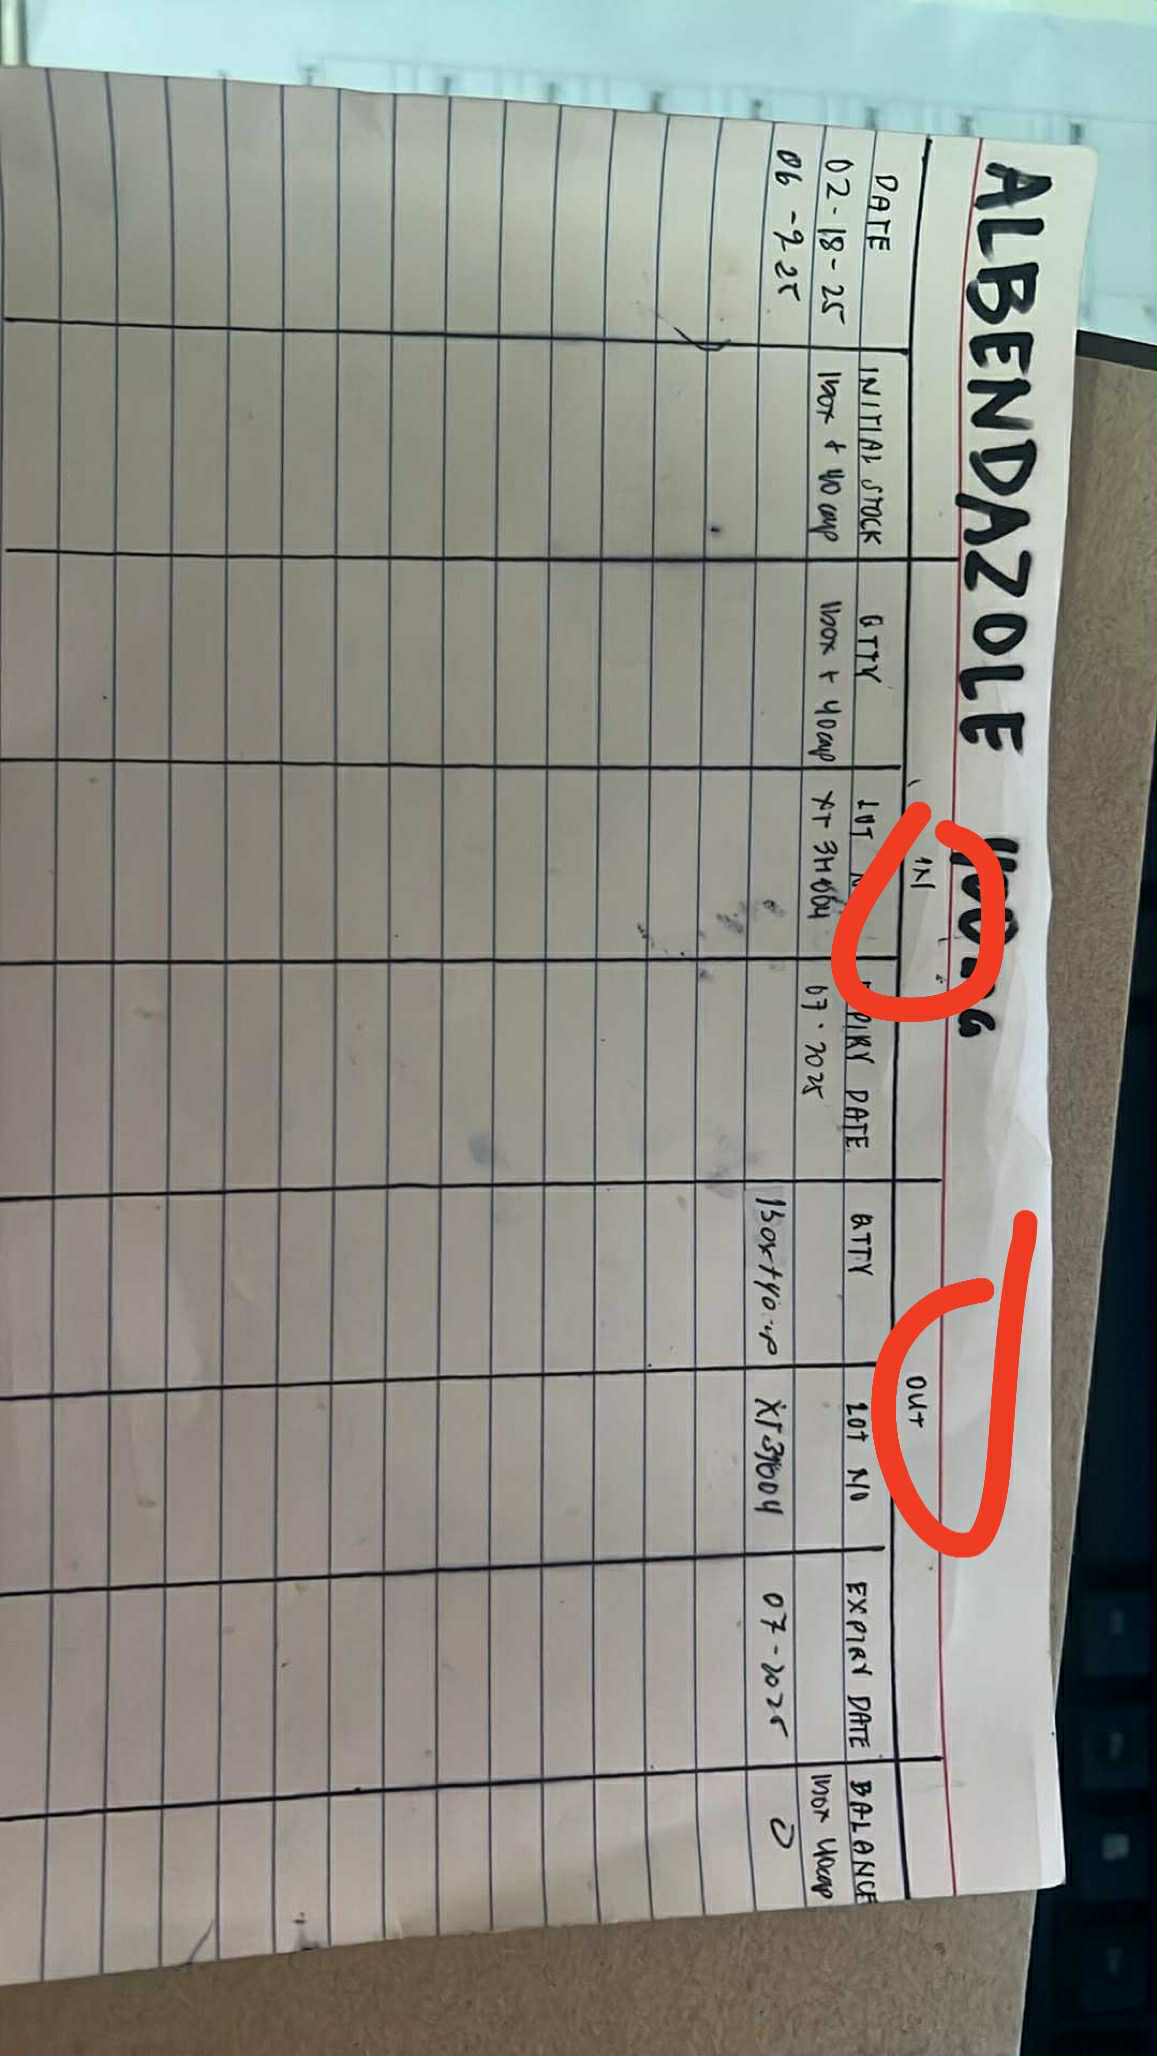 ALBENDAZOLE 400mg
IN OUT
DATE INITIAL STOCK QTTY LOT EXPIRY DATE QTTY LOT NO EXPIRY DATE BALANCE
02-18-25 1box + 40 cap 1box + 40cap XT 3H004 07-2025 1box 40cap
06-9 25 1box+40 XT3H004 07-2025 0